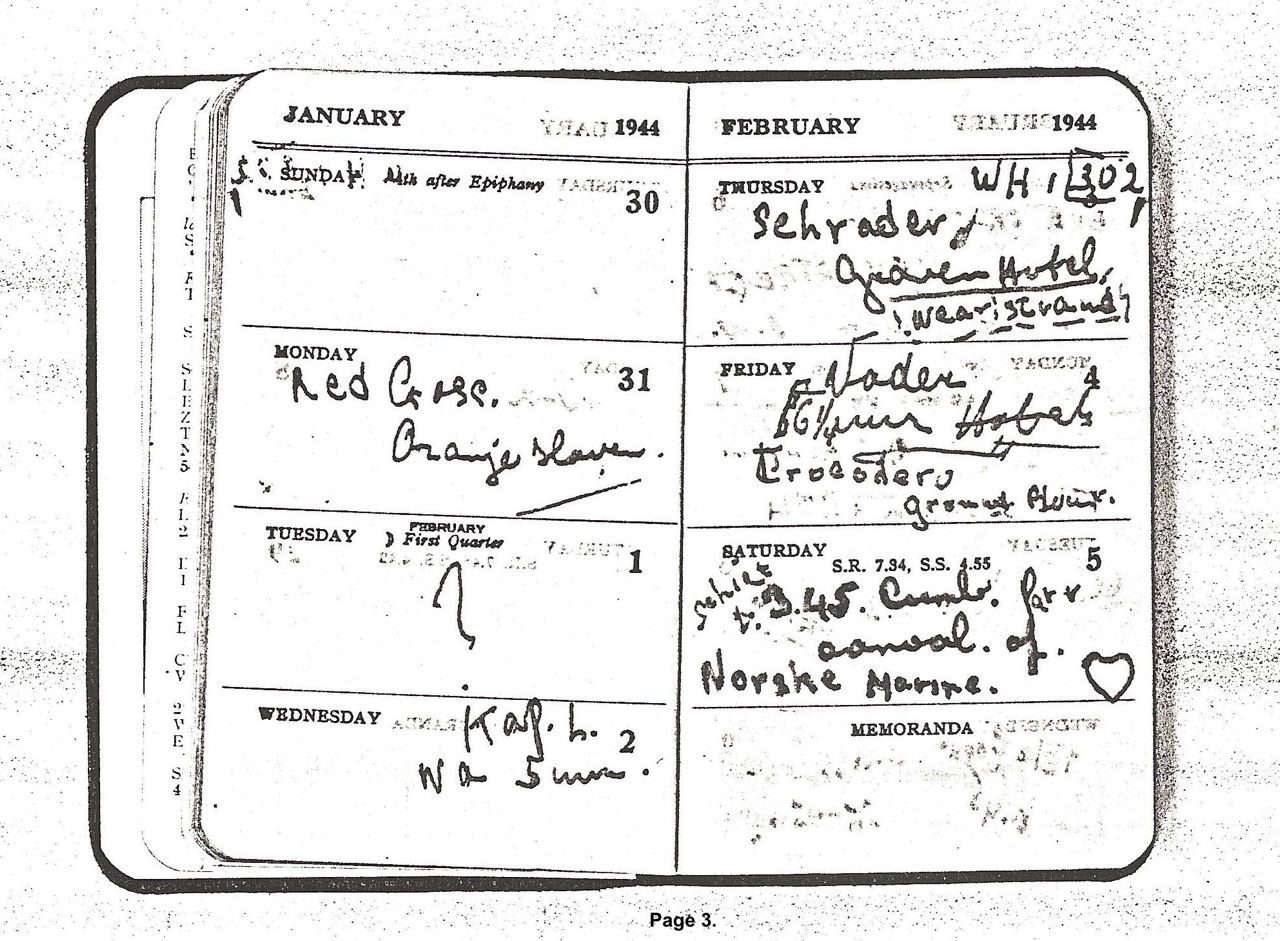 JANUARY 1944
SUNDAY 4th after Epiphany
30
MONDAY
31
Red Cross.
Oranje Haven.
TUESDAY
FEBRUARY
First Quarter
1
?
WEDNESDAY
Kap. L.
2
na 5 uur.
FEBRUARY 1944
THURSDAY
WHI 1302
Schrader,
Hotel,
(Near Strand)
FRIDAY
4
6 1/4 uur Hotel
Trocadero
ground floor.
SATURDAY
S.R. 7.34, S.S. 4.55
5
3.45. Cumb. for
of.
Norske Marine.
MEMORANDA
Page 3.